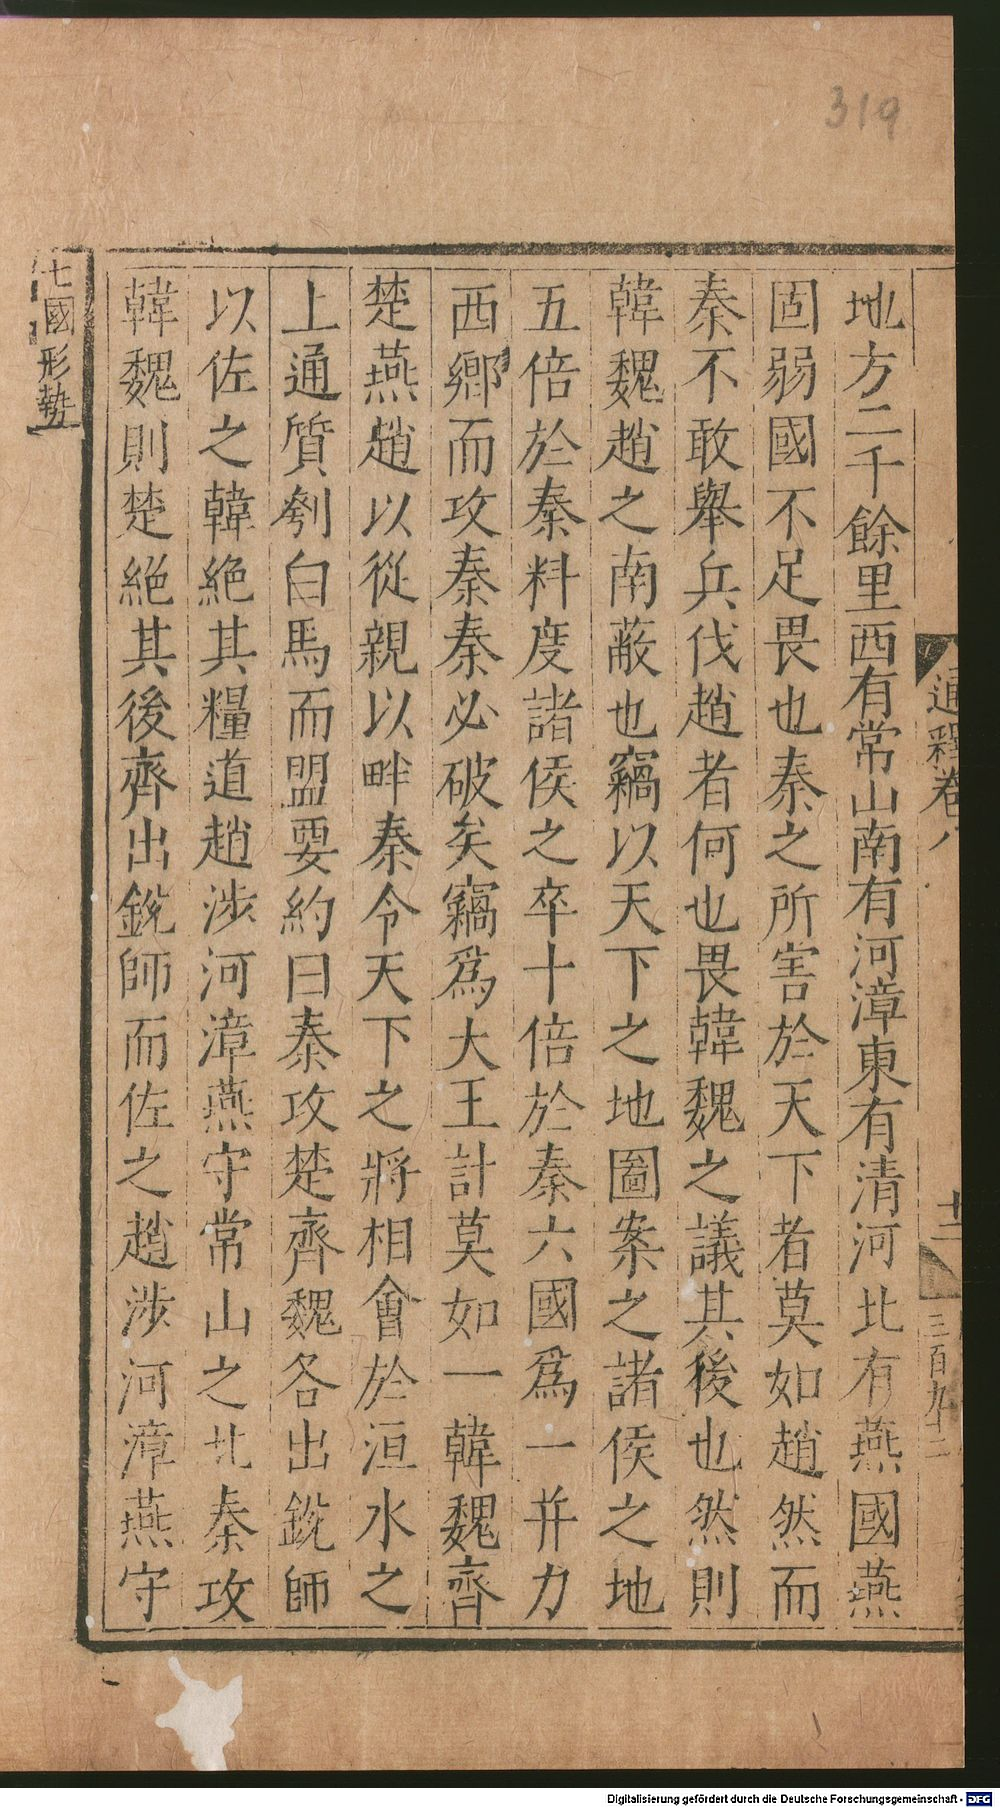 319
通釋卷八
十二
三百九十二
地方二千餘里西有常山南有河漳東有清河北有燕國燕
固弱國不足畏也秦之所害於天下者莫如趙然而
秦不敢舉兵伐趙者何也畏韓魏之議其後也然則
韓魏趙之南蔽也竊以天下之地圖案之諸侯之地
五倍於秦料度諸侯之卒十倍於秦六國爲一并力
西鄉而攻秦秦必破矣竊爲大王計莫如一韓魏齊
楚燕趙以從親以畔秦令天下之將相會於洹水之
上通質刳白馬而盟要約曰秦攻楚齊魏各出銳師
以佐之韓絶其糧道趙涉河漳燕守常山之北秦攻
韓魏則楚絕其後齊出銳師而佐之趙涉河漳燕守
七國形勢
Digitalisierung gefördert durch die Deutsche Forschungsgemeinschaft - DFG